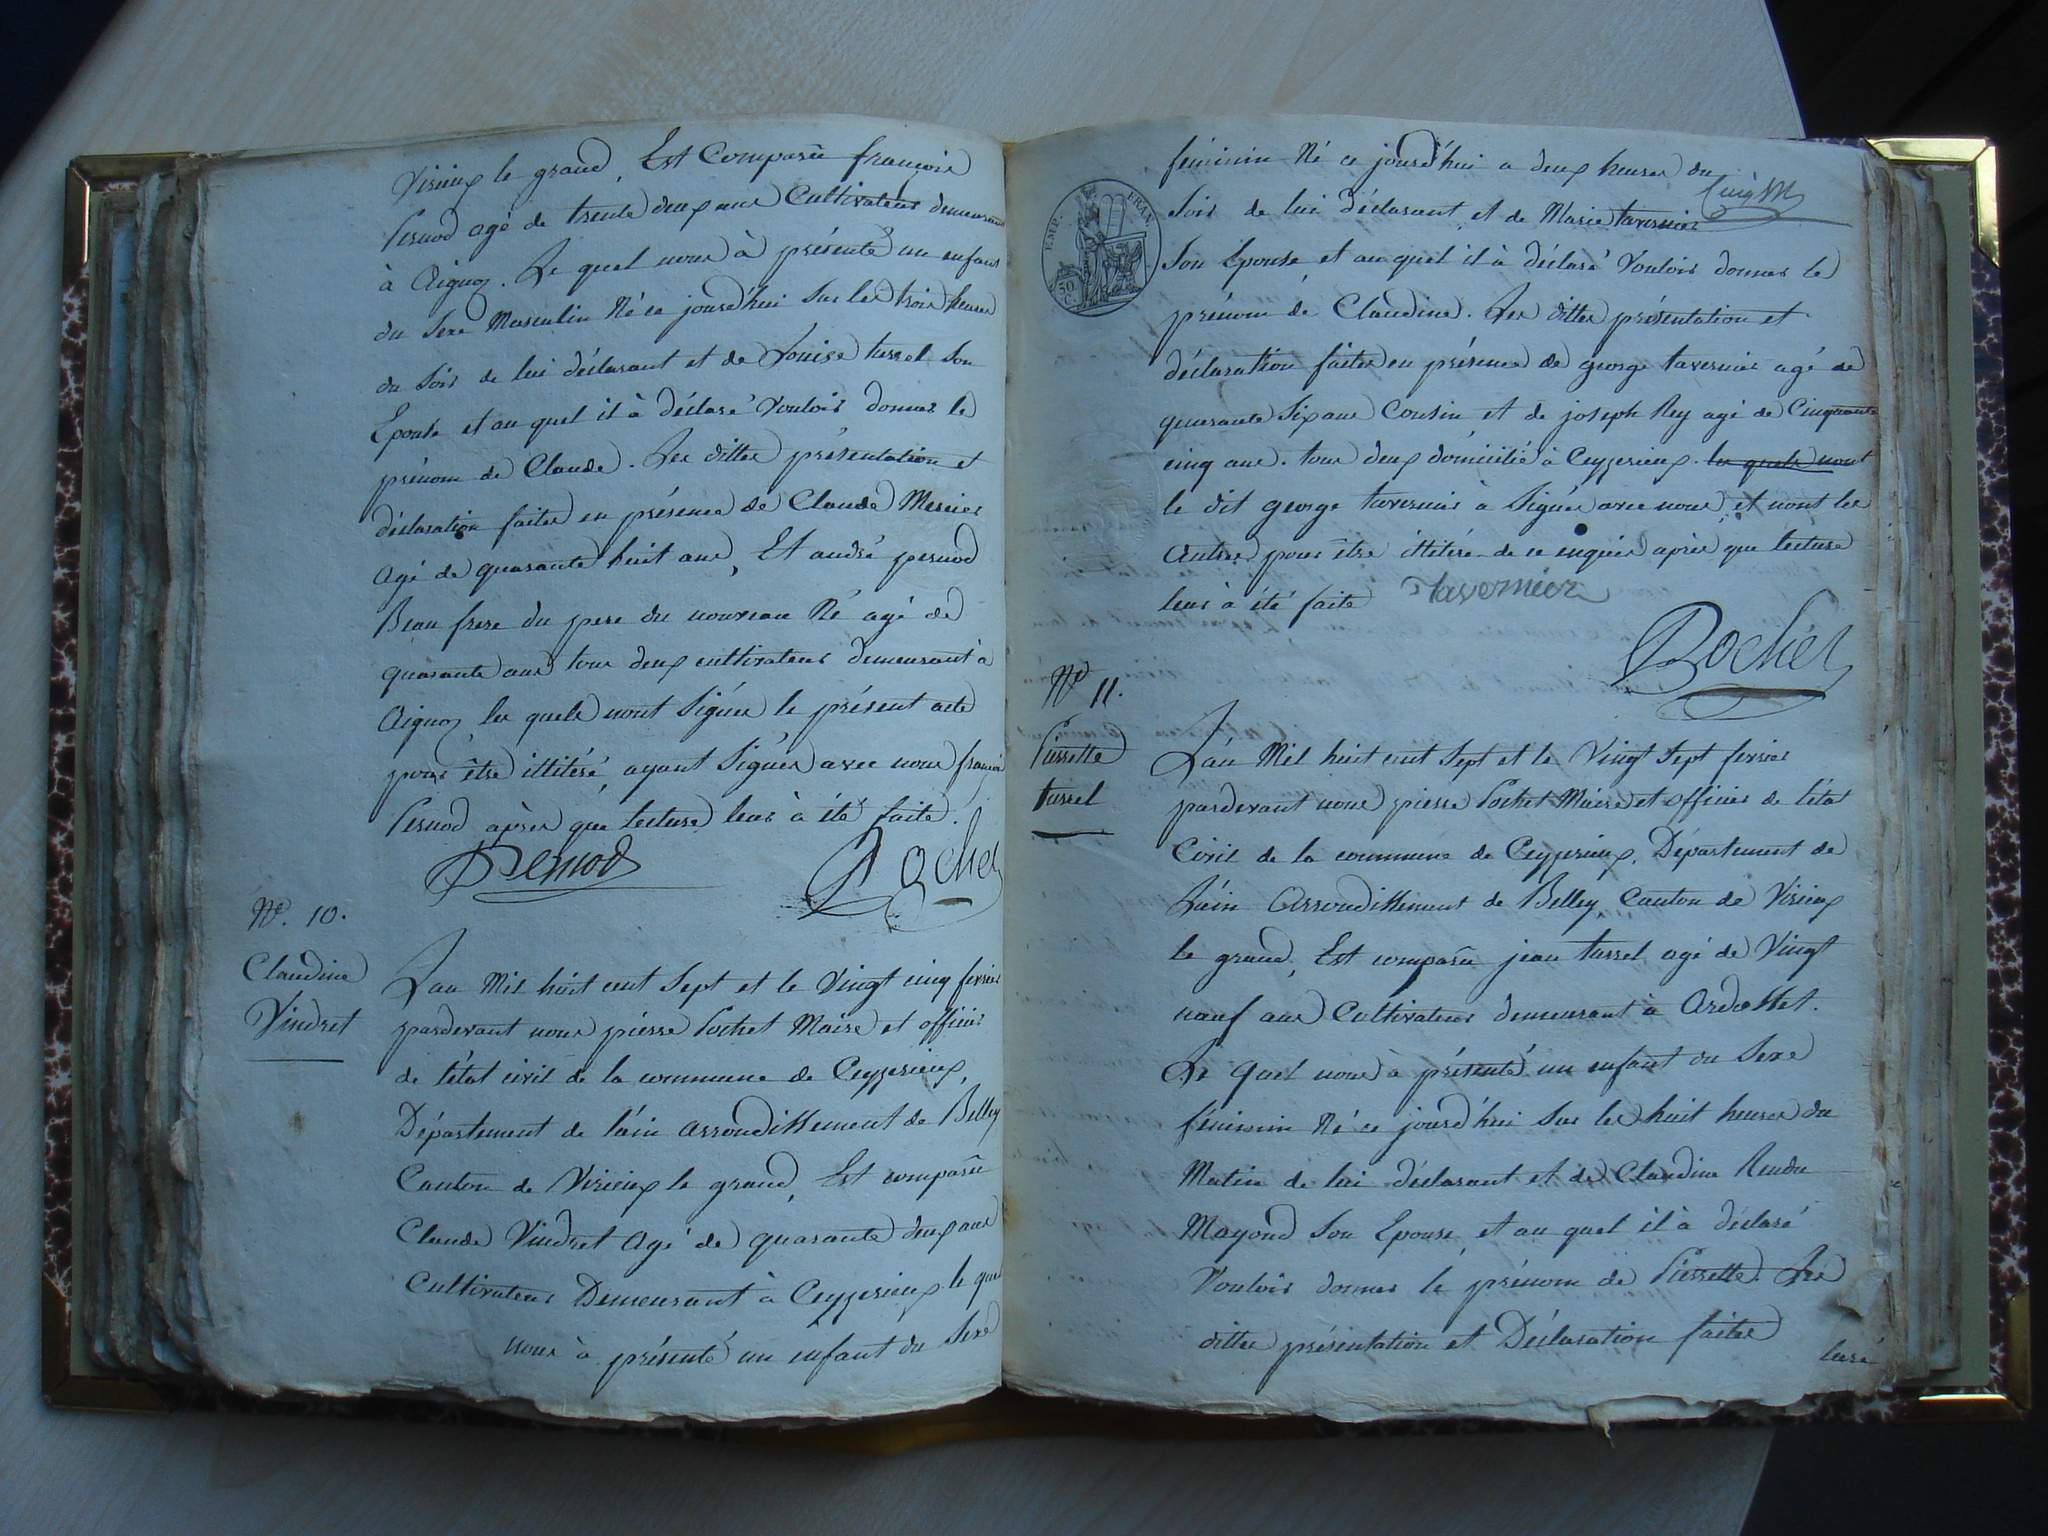 Virieux le grand, Est Comparu françois
Pernod agé de trente deux ans Cultivateur demeurant
à Aignoz. Le quel nous à présenté un enfant
du Sexe Masculin Né ce jourd'hui Sur les trois heures
du Soir de lui déclarant et de Louise tussel Son
Epouse et au quel il à déclaré Vouloir donner le
prénom de Claude. Les dittes présentation et
déclaration faites en présence de Claude Mercier
Agé de quarante huit ans, Et andré pernod
Beau frere du pere du nouveau Né agé de
quarante ans tous deux cultivateurs demeurant à
Aignoz les quels n'ont Signés le présent acte
pour être illitéré, ayant Signés avec nous françois
Pernod après que lecture leur à été faite.
Pernod Pochet
N.º 10.
Claudine
Vindret
L'an Mil huit cent Sept et le Vingt cinq fevrier
pardevant nous pierre Pochet Maire et officier
de l'état civil de la commune de Ceyzerieux,
Département de l'ain arrondissement de Belley
Canton de Virieux le grand, Est comparu
Claude Vindret Agé de quarante deux ans
Cultivateur Demeurant à Ceyzerieux le quel
nous à présenté un enfant du Sexe
féminin Né ce jourd'hui a deux heures du
Soir de lui déclarant et de Marie tavernier
Son Epouse et au quel il à déclaré Vouloir donner le
prénom de Claudine. Les dittes présentation et
EMP. FRAN.
50
C.
déclaration faites en présence de george tavernier agé de
quarante Six ans Cousin et de joseph Rey agé de Cinquante
cinq ans. tous deux domicilié à Ceyzerieux. les quels n'ont
le dit george tavernier à Signés avec nous, et n'ont les
Autres pour être illitéré de ce enquis après que lecture
leur à été faite Tavernier
Pochet
Nº 11.
Pierrette
tussel
L'an Mil huit cent Sept et le Vingt Sept fevrier
pardevant nous pierre Pochet Maire et officier de l'état
Civil de la commune de Ceyzerieux, Département de
L'ain Arrondissement de Belley, Canton de Virieux
le grand, Est comparu jean tussel agé de Vingt
neuf ans Cultivateur demeurant à Ardosset.
Le Quel nous à présenté un enfant du Sexe
féminin Né ce jourd'hui Sur les huit heures du
Matin de lui déclarant et de Claudine Rendu
Mayond Son Epouse, et au quel il à déclaré
Vouloir donner le prénom de Pierrette. Les
dittes présentation et Déclaration faites